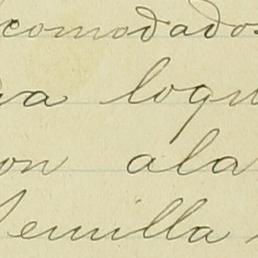 comodados
loqu
on ala
Semilla